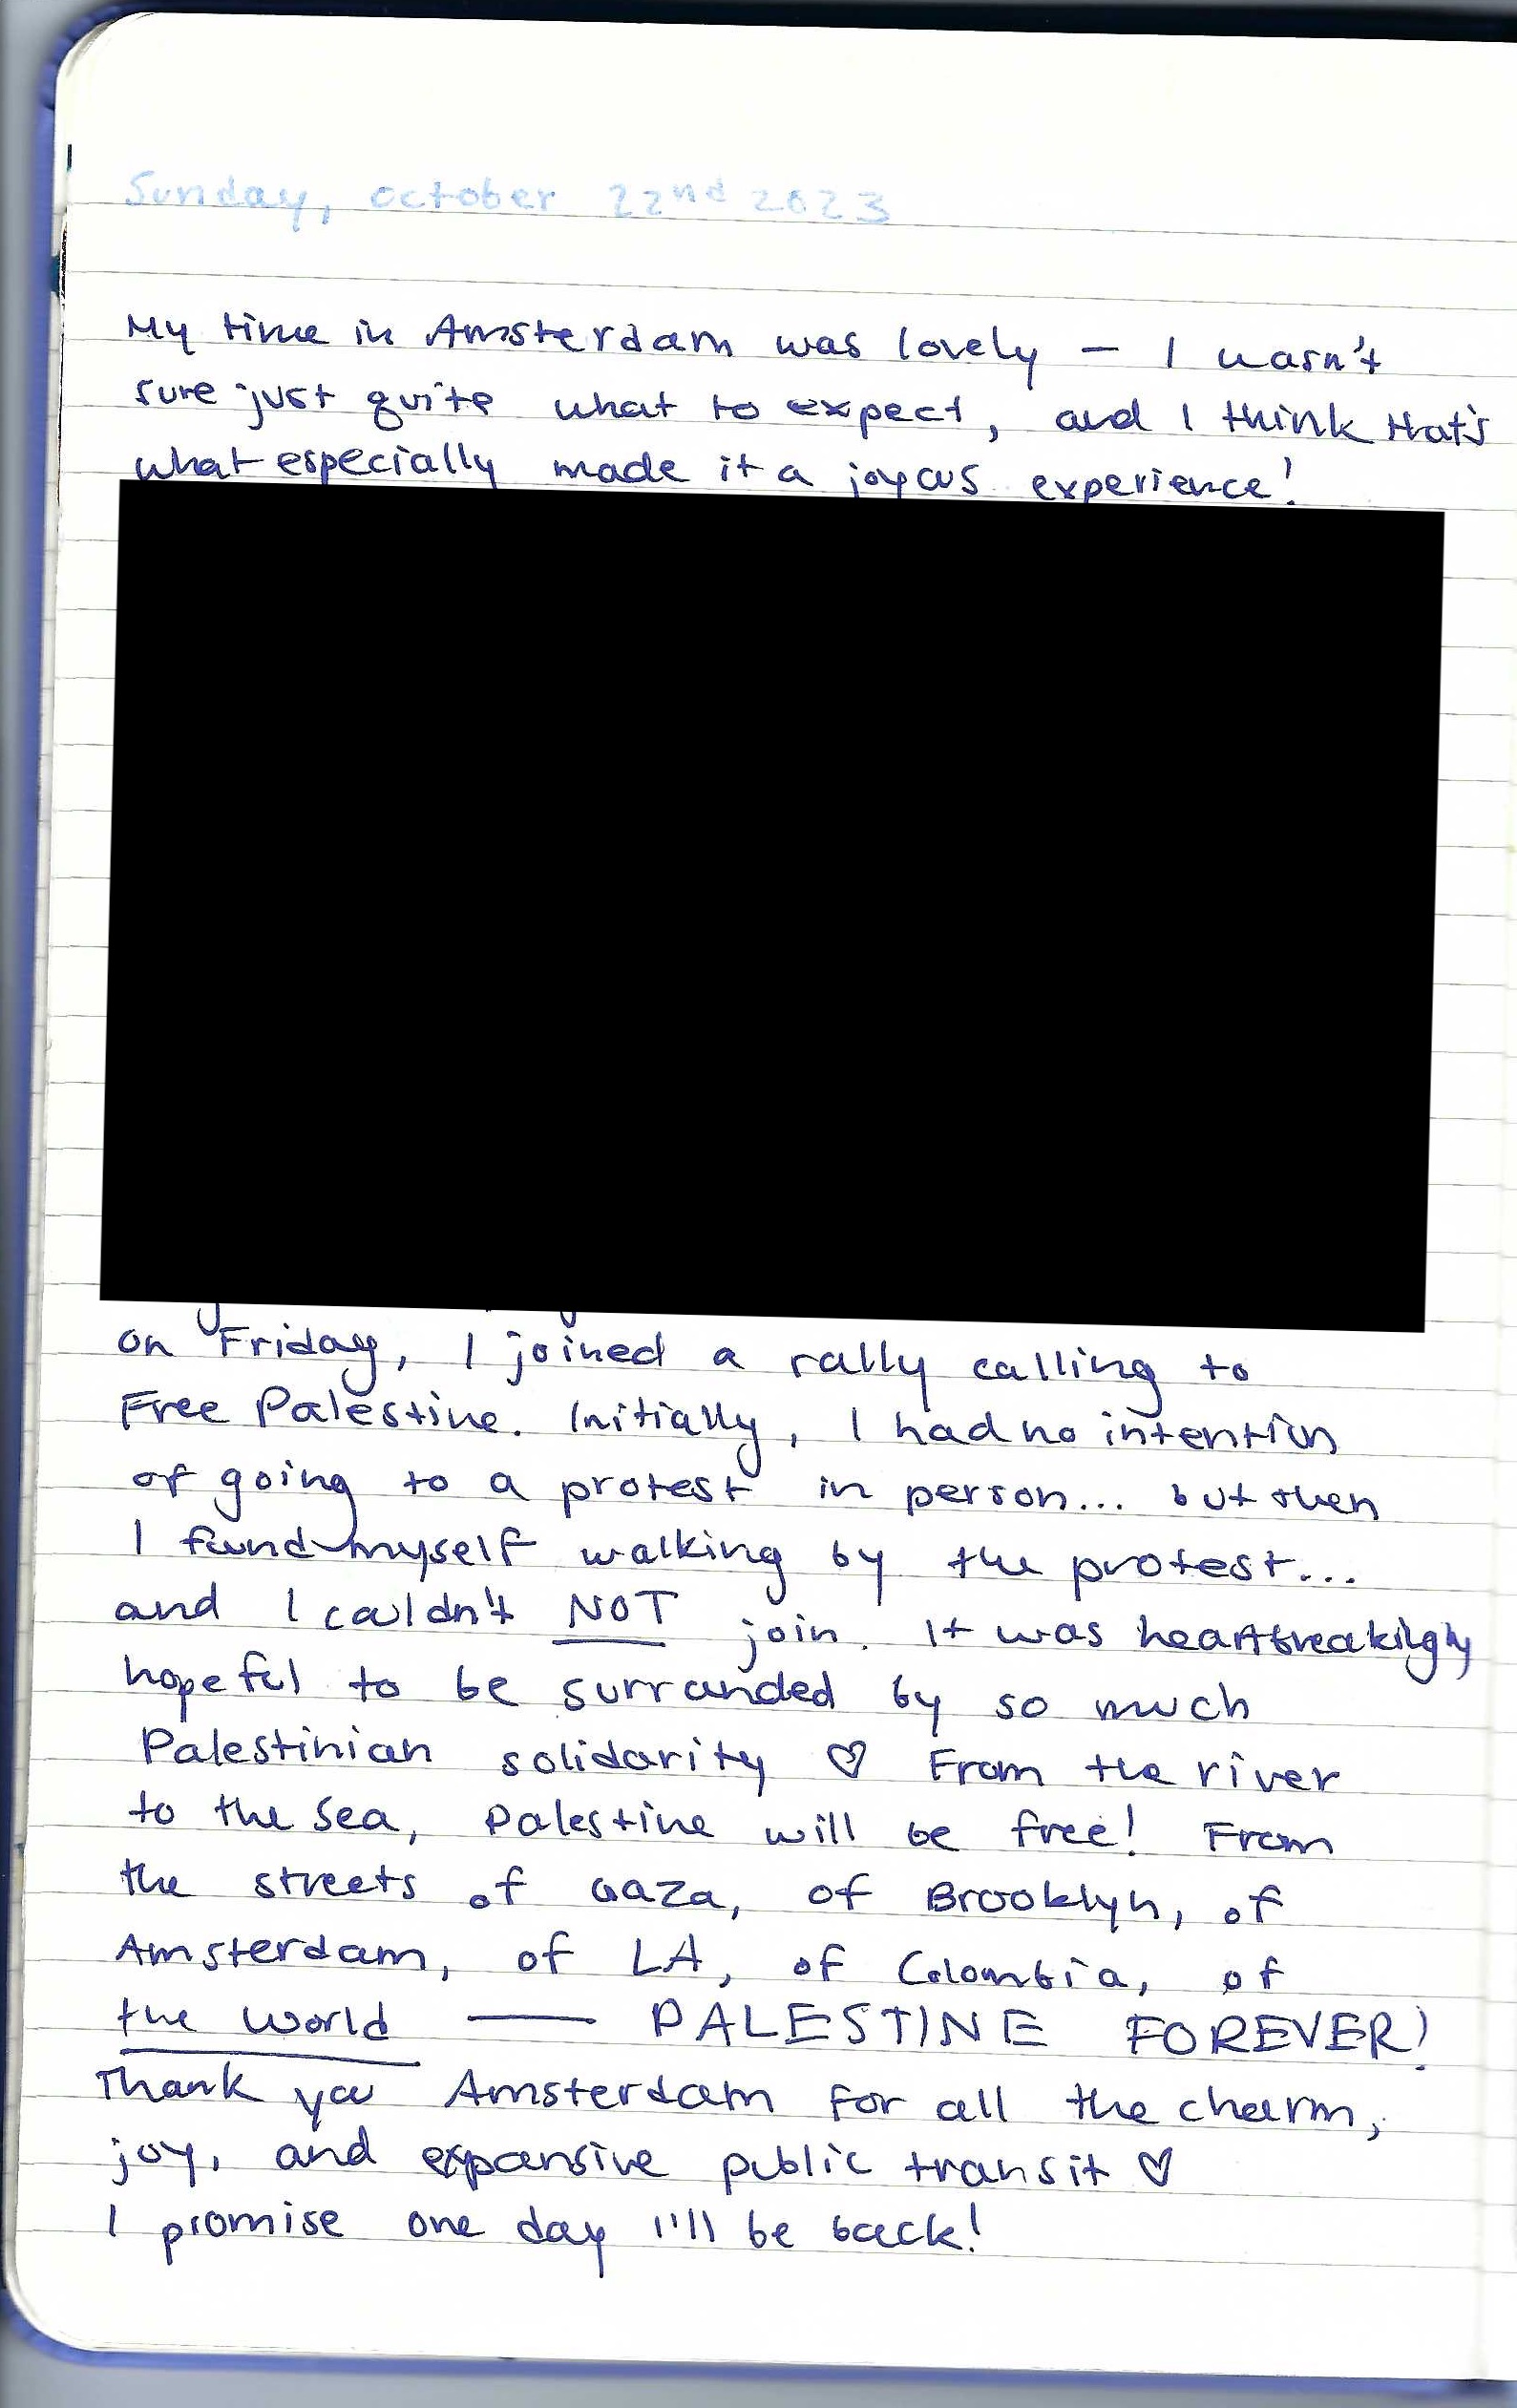 Sunday, october 22nd 2023
My time in Amsterdam was lovely — I wasn't
sure just quite what to expect, and I think that's
what especially made it a joyous experience!
on Friday, I joined a rally calling to
Free Palestine. Initially, I had no intention
of going to a protest in person... but then
I found myself walking by the protest...
and I couldn't NOT join. It was heartbreakingly
hopeful to be surrounded by so much
Palestinian solidarity ♡ From the river
to the sea, Palestine will be free! From
the streets of Gaza, of Brooklyn, of
Amsterdam, of LA, of Colombia, of
the world — PALESTINE FOREVER!
Thank you Amsterdam for all the charm,
joy, and expansive public transit ♡
I promise one day I'll be back!